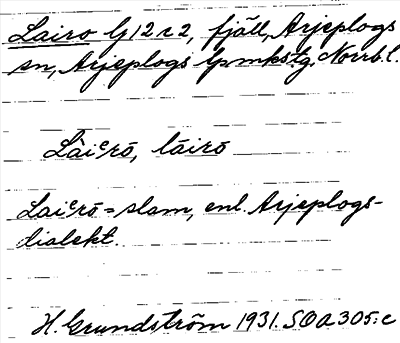 Lairo G12r2, fjäll, Arjeplogs
sn, Arjeplogs lpmkstg. Norrb. l.
Làiᵉrō, láirō
Laiᵉrō = slam, enl. Arjeplogs-
dialekt.
H. Grundström 1931. SOA 305:c